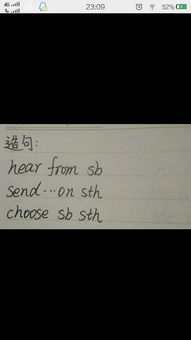 23:09
52%
造句:
hear from sb
send…on sth
choose sb sth